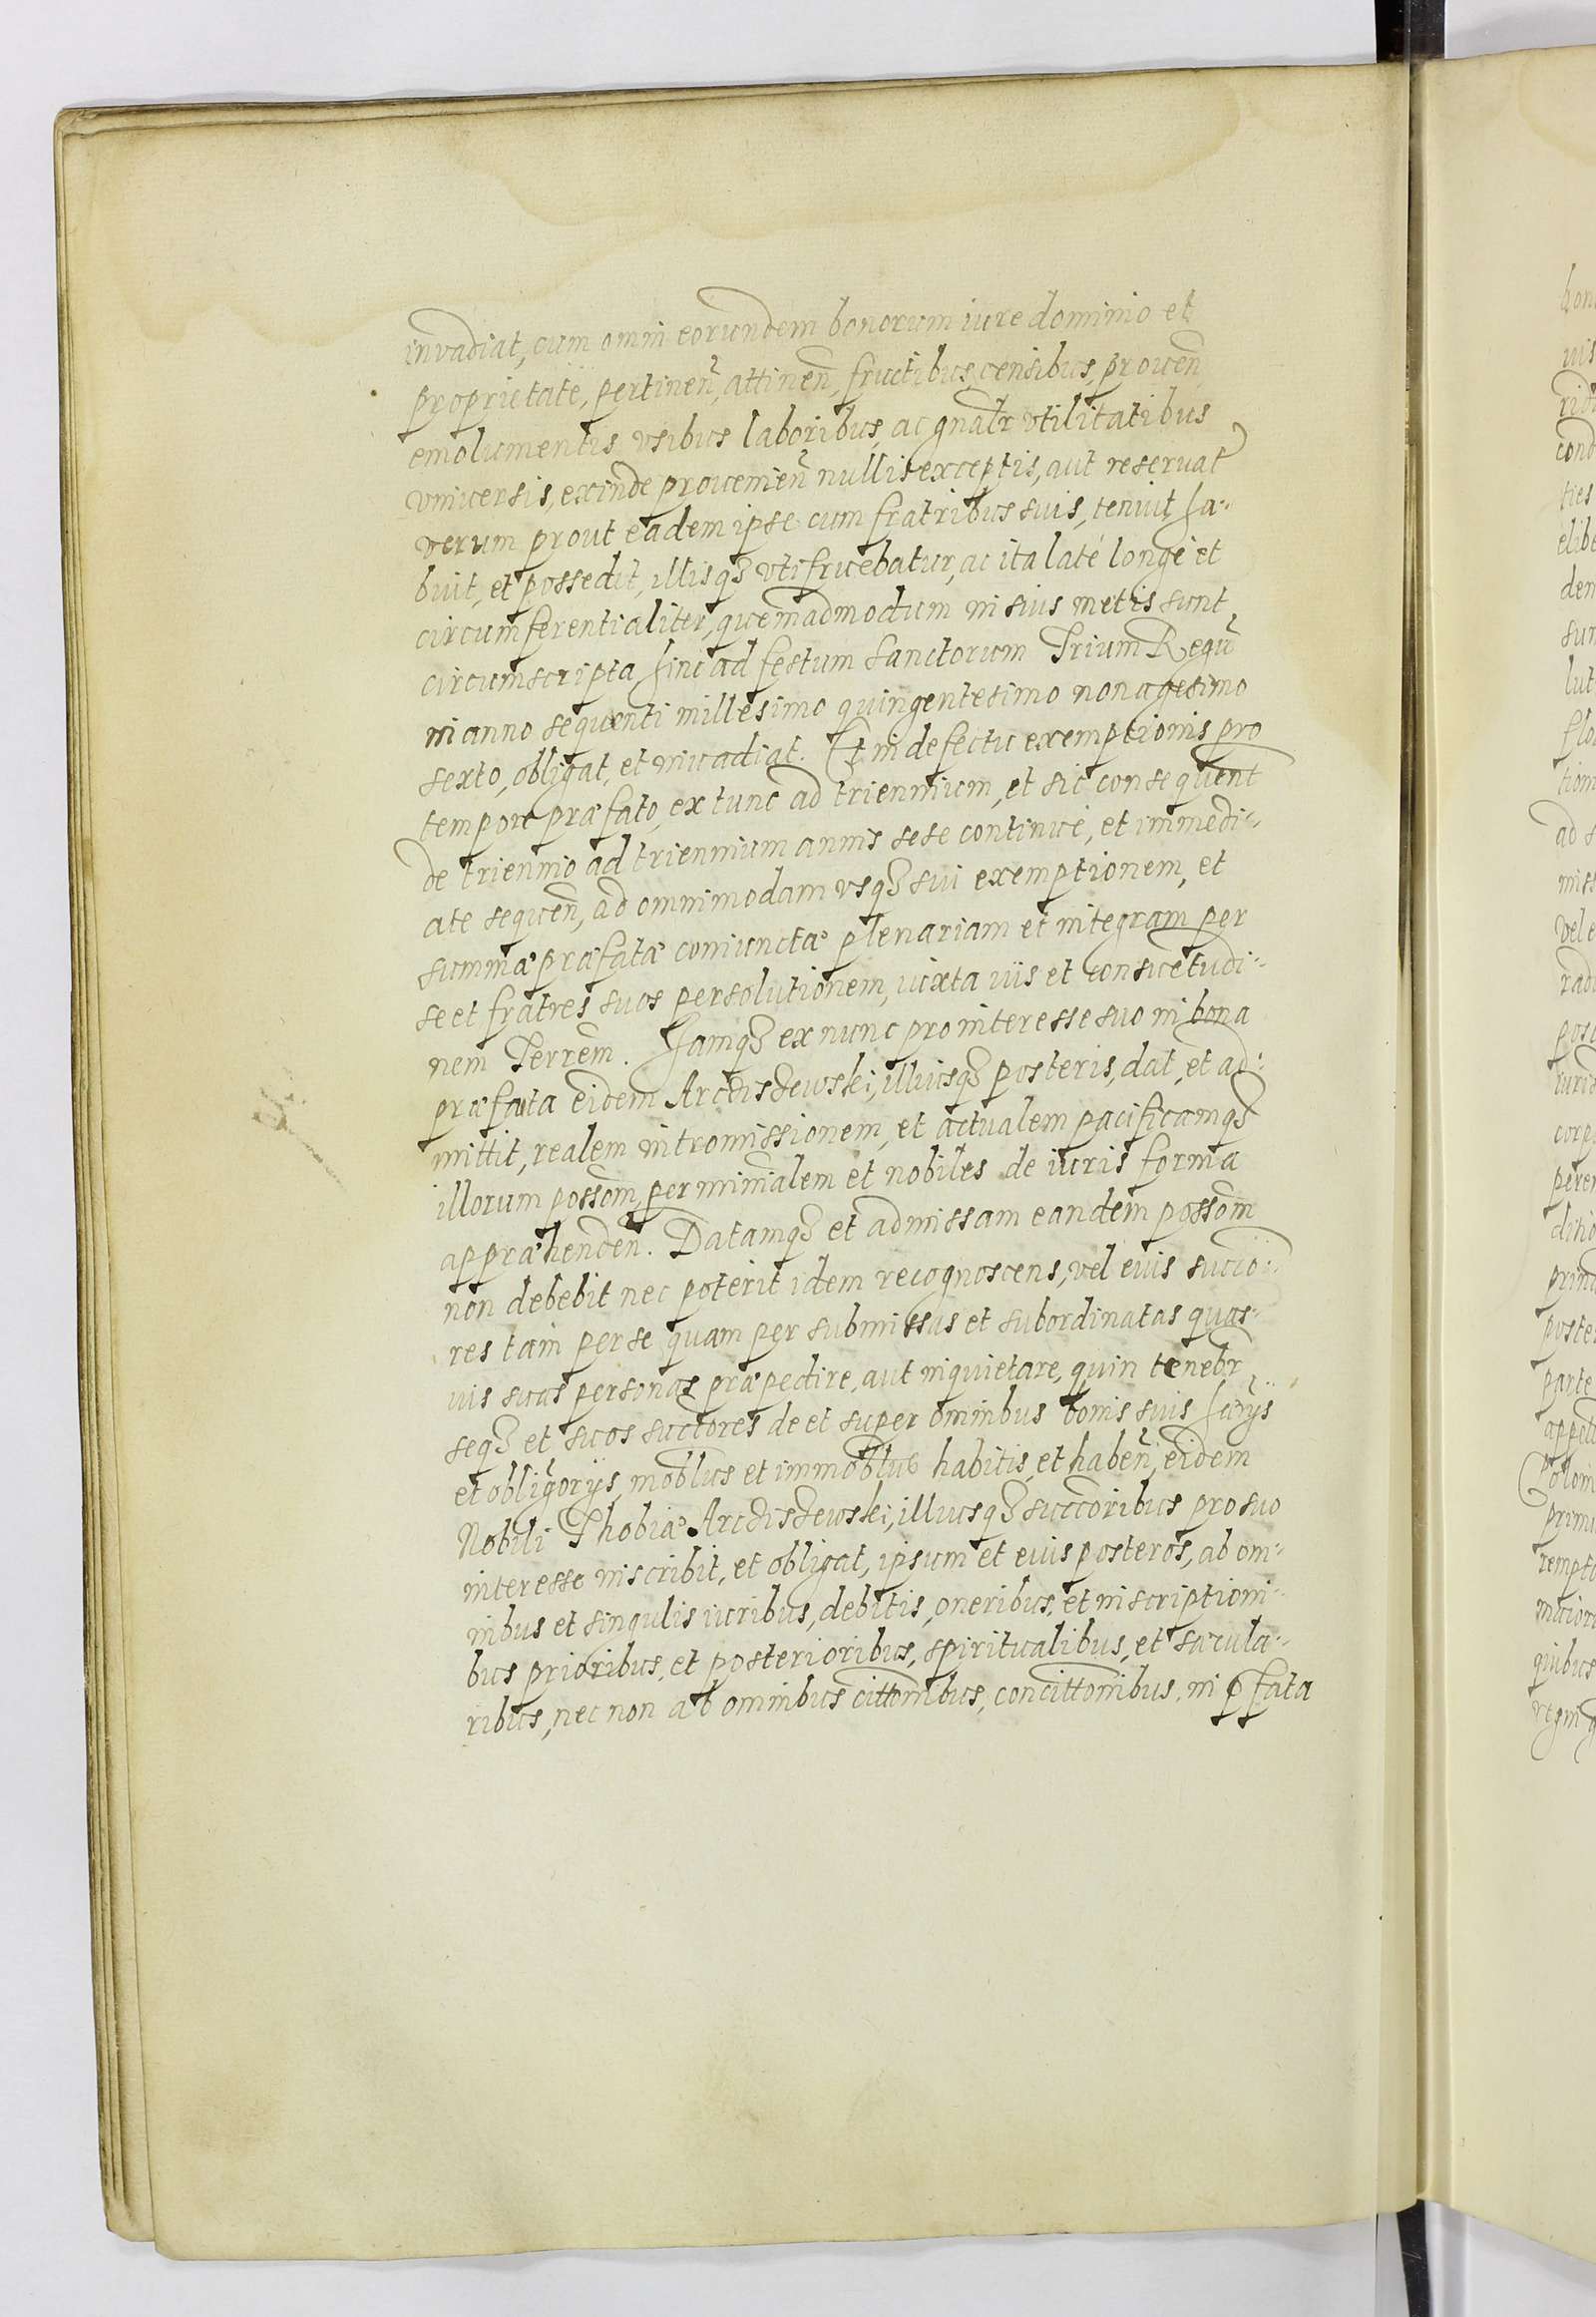 invadiat, cum omni eorundem bonorum iure dominio et
proprietate, pertineñ, attineñ, fructibus, censibus, proueñ
emolumentis vsibus laboribus, ac gnałr vtilitatibus
vniuersis, exinde prouenieñ nullis exceptis, aut reseruat
verum prout eadem ipse cum fratribus suis, tenuit, ha-
buit, et possedit, illisqȝ vtifruebatur, ac ita laté longé et
circumferentialiter, quemadmodum in suis metis sunt
circumscripta, hinc ad festum sanctorum Trium Regũ
in anno sequenti millesimo quingentesimo nonagesimo
sexto, obligat, et inuadiat. Et in defectu exemptionis pro
tempore præfato, extunc ad triennium, et sic consequent
de triennio ad triennium annis sese continué, et immedi-
ate sequeñ, ad omnimodam vsqȝ sui exemptionem, et
summæ præfatæ coniunctæ plenariam et integram per
se et fratres suos persolutionem, iuxta iüs et consuetudi-
nem Terrem̃. Iamqȝ ex nunc pro interesse suo in bona
præfata eidem Arciszewski, illiusqȝ posteris, dat, et ad-
mittit, realem intromissionem, et actualem pacificamqȝ
illorum possom̃, per minialem et nobiles de iuris forma
appræhendeñ. Datamqȝ et admissam eandem possom̃
non debebit nec poterit idem recognoscens, vel euis succo-
res tam per se quam per submissas et subordinatas quas-
uis suas personas præpedire, aut inquietare, quin tenebr
seqȝ et suos suctores de et super omnibus bonis suis hãrijs
et obligorijs, moblus et immoblus habitis, et habeñ, eidem
Nobili Thobiæ Arciszewski, illiusqȝ succcoribus pro suo
interesse inscribit, et obligat, ipsum et euis posteros, ab om-
nibus et singulis iuribus, debitis, oneribus, et inscriptioni-
bus prioribus, et posterioribus, spiritualibus, et sæcula-
ribus, nec non ab omnibus cittonibus, concittonibus, in pfata